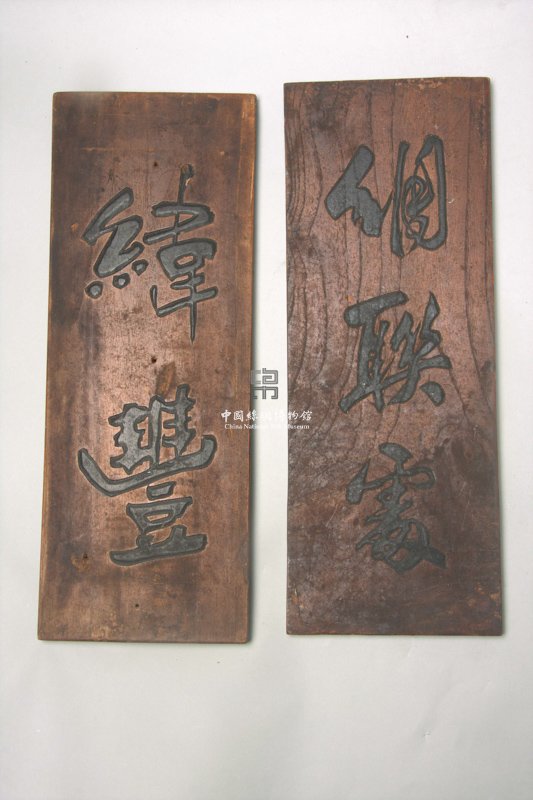 綢聯處
緯豐
中國絲綢博物館
China National Silk Museum